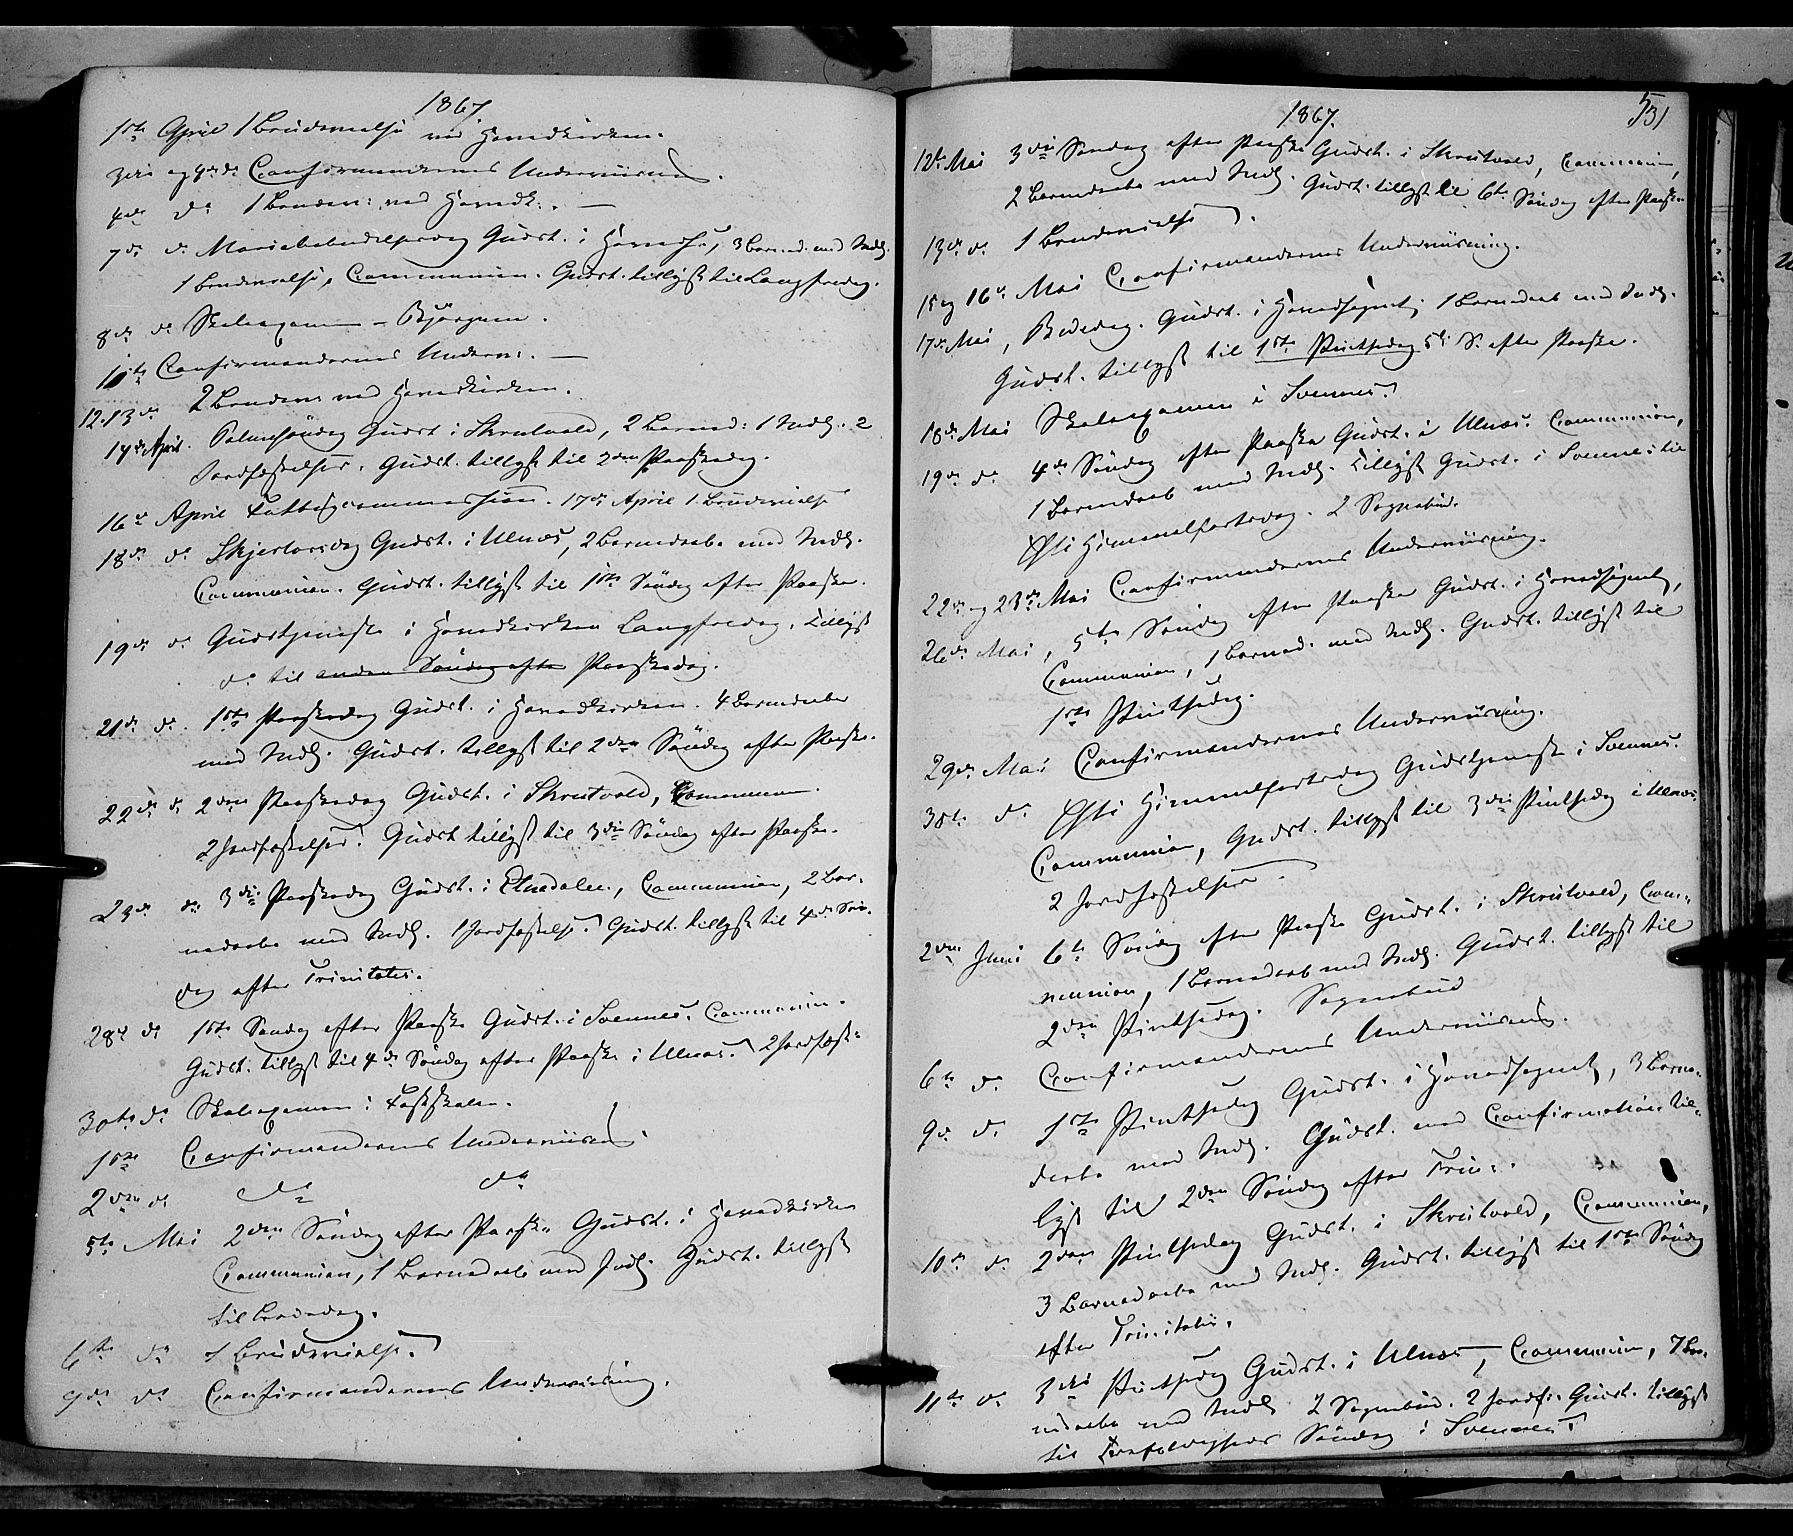 1867.
1ste April 1 Brudevielse ved Hovedkirken.
3die og 4de Confirmandernes Underviisning.
4de do 1 Brudev: ved Hovedk:. —
7de do Mariebebudelsesdag Gudst. i Hoveds:, 3 Barned. med Indl.
1 Brudevielse, Communion. Gudst. tillyst til Langfredag.
8de do Skoleexamen – Bjørgum.
Confirmandernes Underv:. —
12. 13de 2 Brudev. ved Hovedkirken.
14de April. Palmesøndag Gudst i Skrutvold, 2 Barned: 1 Indl. 2
Jordfæstelser. Gudst. tillyst til 2den Paaskedag.
16de April Fattigcommission. 17de April 1 Brudevielse
18de do Skjertorsdag Gudst. i Ulnæs, 2 Barnedaabe med Indl.
Communion. Gudst. tillyst til 1ste Søndag efter Paaske.
19de do Gudstjeneste i Hovedkirken Langfredag. Tillyst
do til anden Søndag efter Paaskedag.
21de do 1ste Paaskedag Gudst. i Hovedkirken. 4 Barnedaabe
med Indl. Gudst. tillyst til 2den Søndag efter Paaske.
22de do 2den Paaskedag Gudst. i Skrutvold, Communion.
2 Jordfæstelser. Gudst tillyst til 3die Søndag efter Paaske.
23de do 3die Paaskedag Gudst. i Etnedalen, Communion, 2 Bar-
nedaabe med Indl. 1 Jordfæstelse. Gudst. tillyst til 4de Søn-
dag efter Trinitatis.
28de do 1ste Søndag efter Paaske Gudst. i Svennes. Communion.
Gudst. tillyst til 4de Søndag efter Paaske i Ulnæs. 2 Jordfæst-
30te do Skoleexamen i Fastskolen.
1ste Confirmandernes Underviisning.
2den do do do
5te Mai 2den Søndag efter Paaske Gudst. i Hovedkirken
Communion, 1 Barnedaab med Indl. Gudst. tillyst
til Bededag.
6te do 1 Brudevielse.
9de do Confirmandernes Underviisning.
1867.
531
12te Mai 3die Søndag efter Paaske Gudst. i Skrutvold, Communion,
2 Barnedaabe med Indl. Gudst. tillyst til 6te Søndag efter Paaske
13de do 1 Brudevielse.
15 og 16de Mai Confirmandernes Underviisning.
17de Mai, Bededag. Gudst. i Hovedsognet, 1 Barnedaab med Indl.
Gudst. tillyst til 1ste Pintsedag 5te S. efter Paaske.
18de Mai Skoleexamen i Svennes.
19de do 4de Søndag efter Paaske Gudst. i Ulnæs. Communion,
1 Barnedaab med Indl. Tillyst Gudst. i Svennes til
Chsti Himmelfartsdag. 2 Sognebud.
22de og 23de Mai Confirmandernes Underviisning.
26de Mai, 5te Søndag efter Paaske Gudst. i Hovedsognet,
Communion, 1 Barned. med Indl. Gudst. tillyst til
1ste Pintsedag.
29de Mai Confirmandernes Underviisning.
30te do Chsti Himmelfartsdag Gudstjeneste i Svennes.
Communion, Gudst. tillyst til 3die Pintsedag i Ulnæs.
2 Jordfæstelser.
2den Juni 6te Søndag efter Paaske Gudst. i Skrutvold, Com-
munion, 1 Barnedaab med Indl. Gudst. tillyst til
2den Pintsedag. Sognebud
6te do Confirmandernes Underviisning.
9de do 1ste Pintsedag Gudst. i Hovedsognet, 3 Barne-
daabe med Indl. Gudst. med Confirmation til-
lyst til 2den Søndag efter Trin:.
10de do 2den Pintsedag Gudst. i Skrutvold, Communion,
3 Barnedaabe med Indl. Gudst. tillyst til 1ste Søndag
efter Trinitatis.
11te do 3die Pintsedag Gudst. i Ulnæs, Communion, 7 Bar-
nedaabe med Indl. 2 Sognebud. 2 Jordf. Gudst. tillyst
til Trefoldigheds Søndag i Svennes.